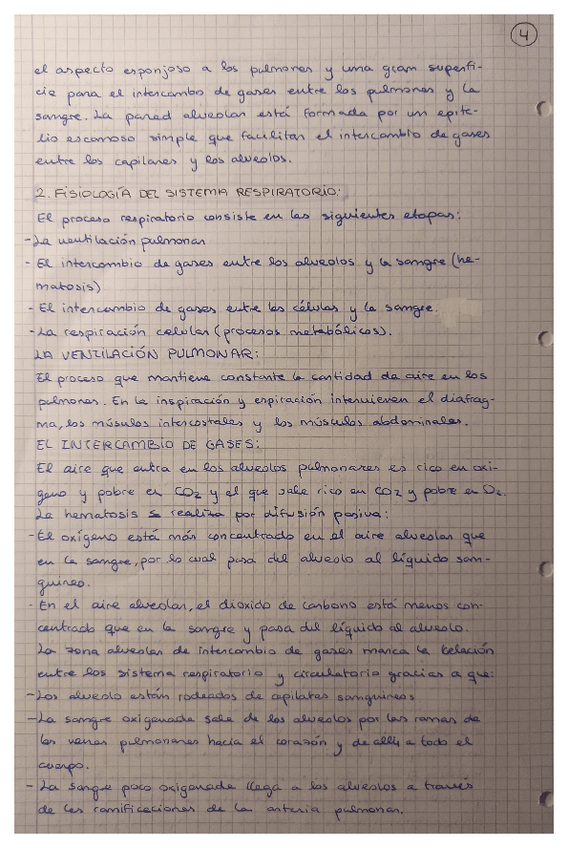 4
el aspecto esponjoso a los pulmones y una gran superfi-
cie para el intercambo de gases entre los pulmones y la
sangre. La pared alveolar está formada por un epite-
lio escamoso simple que facilitan el intercambio de gases
entre los capilares y los alveolos.
2. FISIOLOGÍA DEL SISTEMA RESPIRATORIO:
El proceso respiratorio consiste en las siguientes etapas:
-La ventilación pulmonar
- El intercambio de gases entre los alveolos y la sangre (he-
matosis)
- El intercambio de gases entre las células y la sangre.
- La respiración celular (procesos metabólicos).
LA VENTILACIÓN PULMONAR:
El proceso que mantiene constante la cantidad de aire en los
pulmones. En la inspiración y espiración intervienen el diafrag-
ma, los músulos intercostales y los músulos abdominales.
EL INTERCAMBIO DE GASES:
El aire que entra en los alveolos pulmonares es rico en oxi-
geno y pobre en CO2 y el que sale rico en CO2 y pobre en O2.
La hematosis se realiza por difusión pasiva:
- El oxígeno está más concentrado en el aire alveolar que
en la sangre, por lo cual pasa del alveolo al líquido san-
guíneo.
- En el aire alveolar, el dioxido de carbono está menos con-
centrado que en la sangre y pasa del líquido al alveolo.
La zona alveolar de intercambio de gases marca la relación
entre los sistema respiratorio y circulatorio gracias a que:
- Los alveolo están rodeados de capilares sanguineos
- La sangre oxigenada sale de los alveolos por las ramas de
las venas pulmonares hacia el corazón y de allí a todo el
cuerpo.
- La sangre poco oxigenada llega a los alveolos a través
de las ramificaciones de la arteria pulmonar.